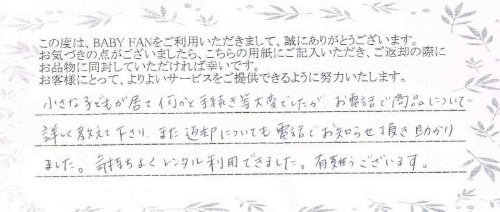 この度は、BABY FANをご利用いただきまして、誠にありがとうございます。
お気づきの点がございましたら、こちらの用紙にご記入いただき、ご返却の際に
お品物に同封していただければ幸いです。
お客様にとって、よりよいサービスをご提供できるように努力いたします。
小さな子どもが居て何かと手続き等大変でしたが お電話で商品について
詳しく教えて下さり、また返却についても電話でお知らせ頂き助かり
ました。気持ちよくレンタル利用できました。有難うございます。